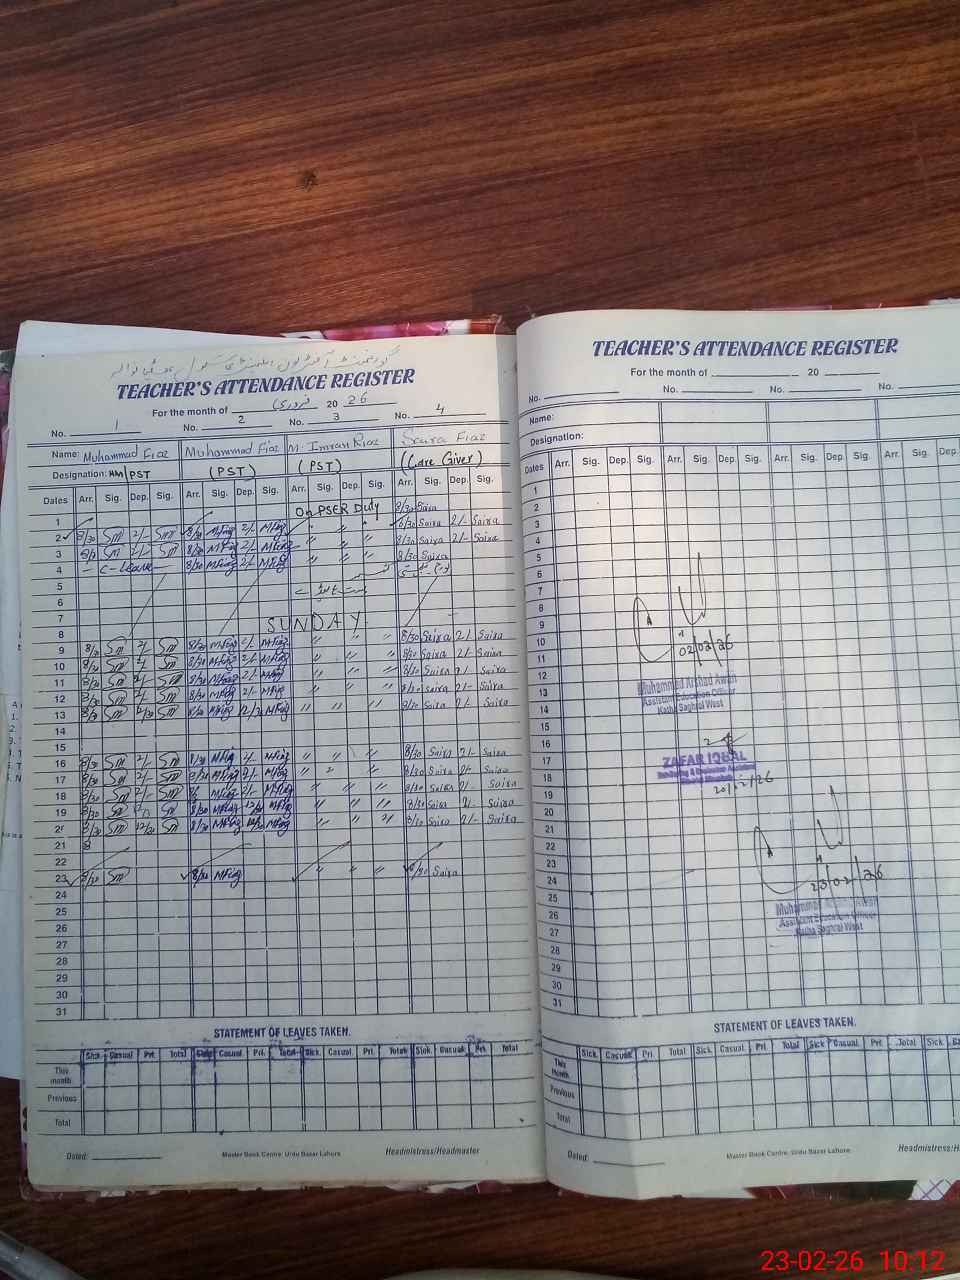 TEACHER'S ATTENDANCE REGISTER
For the month of فروری 20 26
No. 1 No. 2 No. 3 No. 4
Name: Muhammad Fiaz Muhammad Fiaz M. Imran Riaz Saira Fiaz
Designation: HM PST (PST) (PST) (Care Giver)
Dates Arr. Sig. Dep. Sig. Arr. Sig. Dep. Sig. Arr. Sig. Dep. Sig. Arr. Sig. Dep. Sig.
1 On PSER Duty 8/30 Saira
2 8/30 Sm 2/- Sm 8/30 MFiaz 2/- MFiaz " " " 8/30 Saira 2/- Saira
3 Sm 2/- Sm 8/30 MFiaz 2/- MFiaz " " " 8/30 Saira 2/- Saira
4 - C-Leave - 8/30 MFiaz 2/- MFiaz " " " 8/30 Saira
5
6
7
8 SUNDAY
9 8/30 Sm 2/- Sm 8/30 MFiaz 2/- MFiaz " " " 8/30 Saira 2/- Saira
10 8/30 Sm 2/- Sm 8/30 MFiaz 2/- MFiaz " " " 8/30 Saira 2/- Saira
11 8/30 Sm 2/- Sm 8/30 MFiaz 2/- MFiaz " " " 8/30 Saira 2/- Saira
12 8/30 Sm 2/- Sm 8/30 MFiaz 2/- MFiaz " " " 8/30 Saira 2/- Saira
13 8/30 Sm 12/30 Sm 8/30 MFiaz 12/30 MFiaz " " " 8/30 Saira 2/- Saira
14
15
16 8/30 Sm 2/- Sm 8/30 MFiaz 2/- MFiaz " " " 8/30 Saira 2/- Saira
17 8/30 Sm 2/- Sm 8/30 MFiaz 2/- MFiaz " " " 8/30 Saira 2/- Saira
18 8/30 Sm 2/- Sm MFiaz 2/- MFiaz " " " 8/30 Saira 2/- Saira
19 8/30 Sm Sm 8/30 MFiaz MFiaz " " " 8/30 Saira 2/- Saira
20 8/30 Sm 12/30 Sm 8/30 MFiaz 12/30 MFiaz " " " 8/30 Saira 2/- Saira
21 8
22
23 8/30 Sm 8/30 MFiaz 8/30 Saira
24
25
26
27
28
29
30
31
STATEMENT OF LEAVES TAKEN.
Sick. Casual Pri. Total Sick Casual. Pri. Total Sick. Casual. Pri. Total Sick. Casual. Pri. Total
This month
Previous
Total
Dated: Master Book Centre, Urdu Bazar Lahore Headmistress/Headmaster
TEACHER'S ATTENDANCE REGISTER
For the month of 20
No. No. No. No.
Name:
Designation:
Dates Arr. Sig. Dep. Sig. Arr. Sig. Dep. Sig. Arr. Sig. Dep. Sig. Arr. Sig. Dep.
1
2
3
4
5
6
7
8
9
10
11
12
13
14
15
16
17
18
19
20
21
22
23
24
25
26
27
28
29
30
31
02/02/26
Muhammad Arshad Awan
Assistant Education Officer
Katha Saghral West
ZAFAR IQBAL
20/02/26
23/02/26
Muhammad Arshad Awan
Assistant Education Officer
Katha Saghral West
STATEMENT OF LEAVES TAKEN.
Sick. Casual Pri. Total Sick. Casual. Pri. Total Sick Casual. Pri. Total Sick
This month
Previous
Total
Dated: Master Book Centre, Urdu Bazar Lahore
23-02-26 10:12